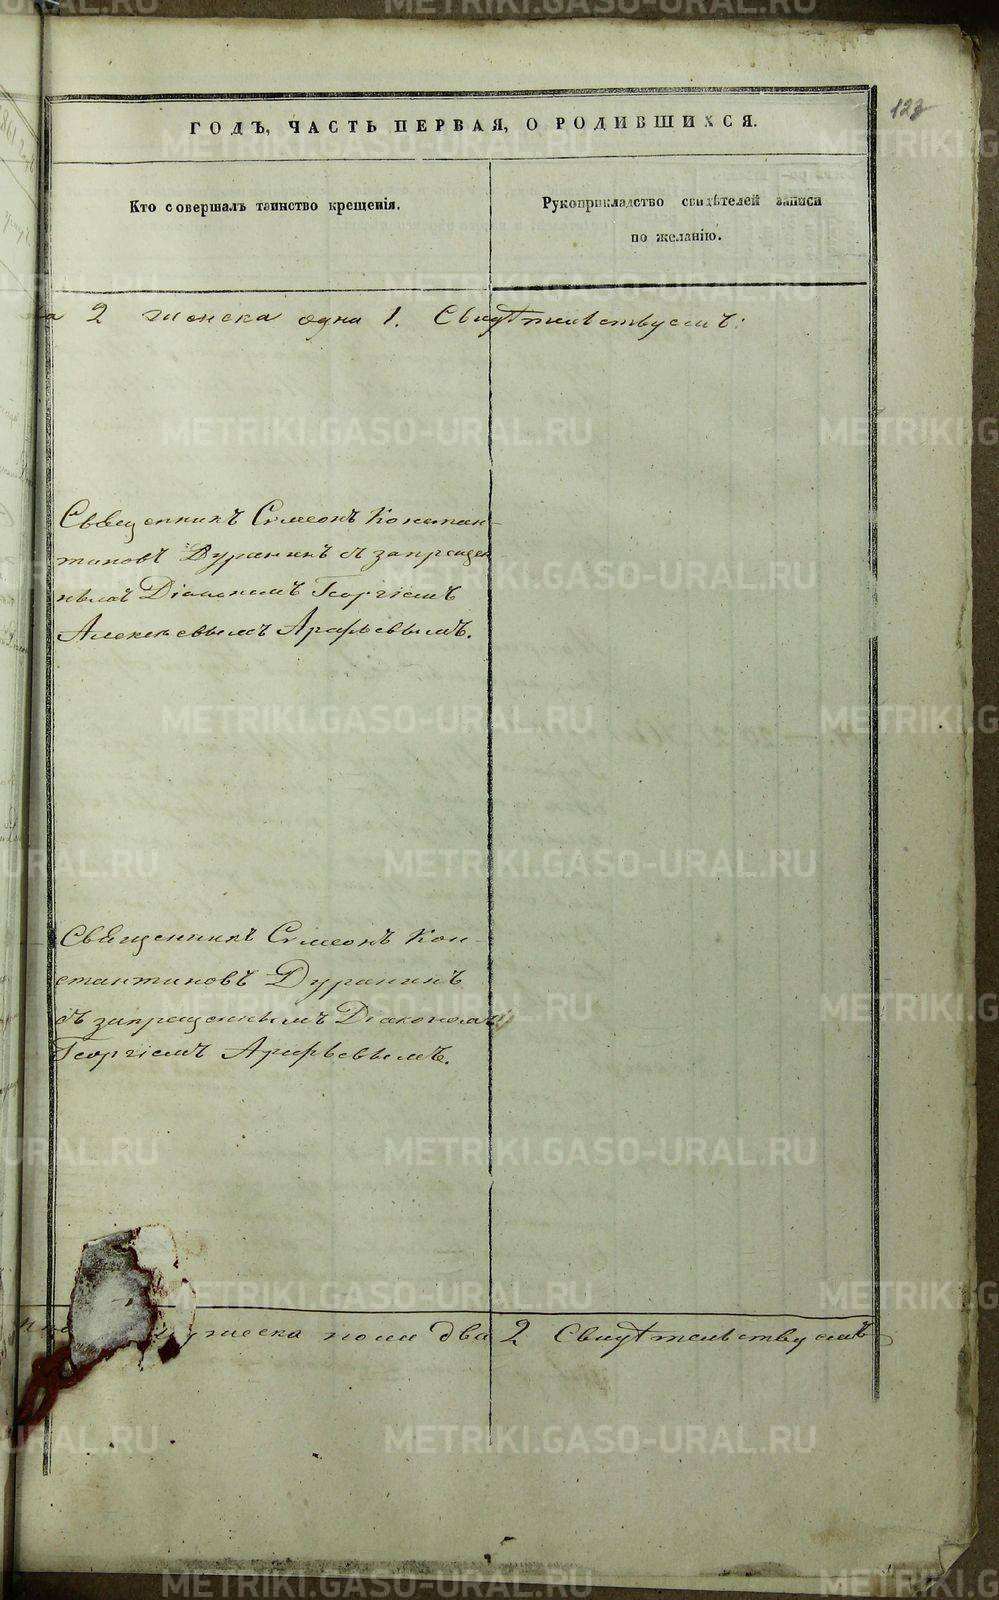 METRIKI.GASO-URAL.RU
123
ГОДЪ, ЧАСТЬ ПЕРВАЯ, О РОДИВШИХСЯ.
Кто совершалъ таинство крещенія.
Рукоприкладство свидѣтелей записи
по желанію.
а 2 женска одна 1. Свидѣтельствуемъ:
Священникъ Симеонъ Констан-
тиновъ Дуранинъ съ запрещен
нымъ Діакономъ Георгіемъ
Алексѣевымъ Арафьевымъ.
Священникъ Симеонъ Кон-
стантиновъ Дуранинъ
съ запрещеннымъ Діакономъ
Георгіемъ Арафьевымъ.
мужеска пола два 2 Свидѣтельствуемъ